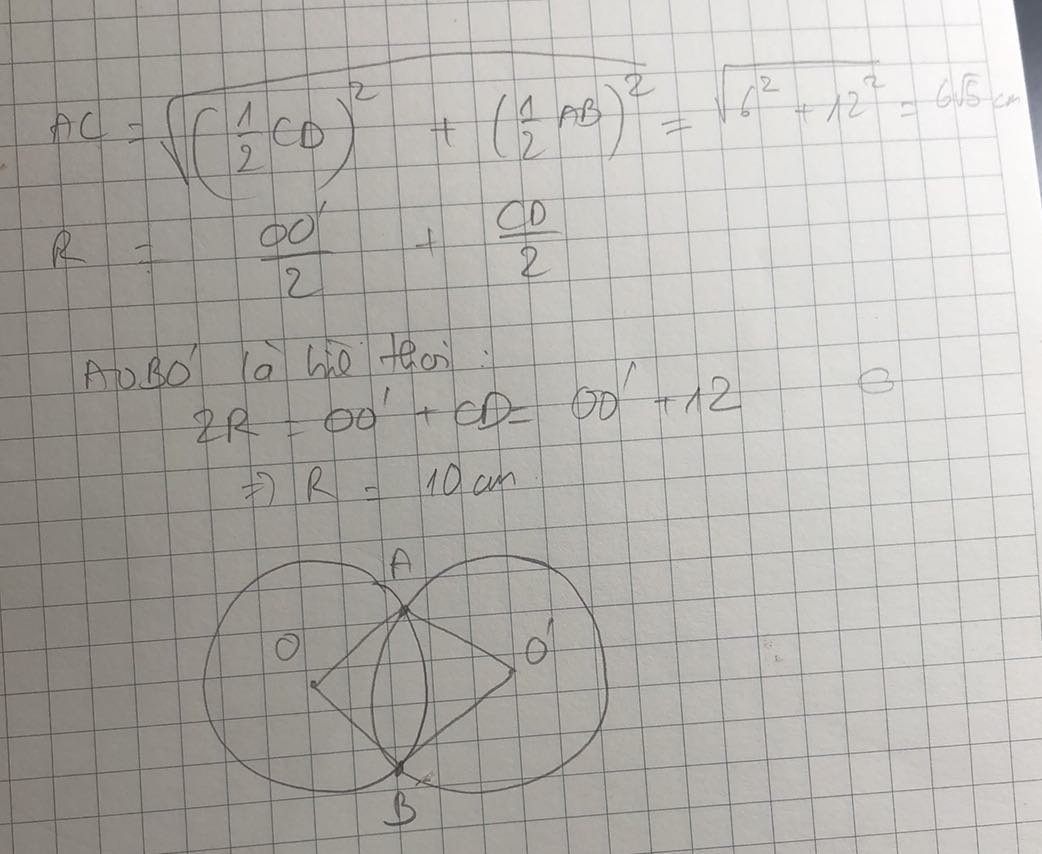 AC = √((1/2 CD)² + (1/2 AB)²) = √(6² + 12²) = 6√5 cm
R = OO'/2 + CD/2
AOBO' là hìn thoi :
2R = OO' + CD = OO' + 12
=> R = 10 cm
A
O
O'
B